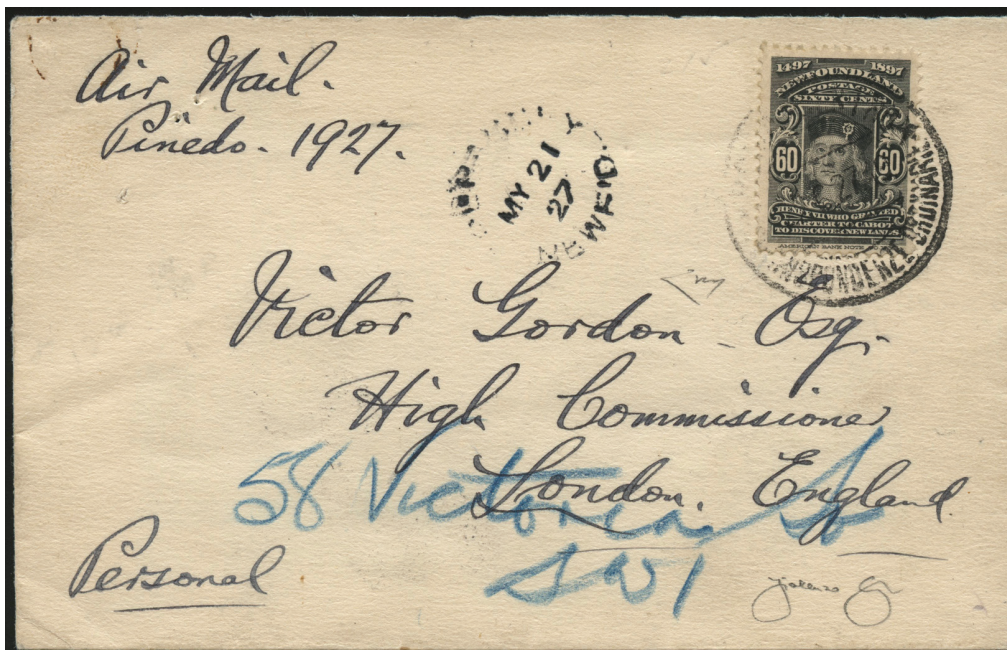 Air Mail.
Pinedo. 1927.
MY 21
27
NEWF'D.
1497 1897
NEWFOUNDLAND
POSTAGE
SIXTY CENTS
60 60
HENRY VII WHO GRANTED
CHARTER TO CABOT
TO DISCOVER NEW LANDS
AMERICAN BANK NOTE
Victor Gordon Esq.
High Commissioner
London. England.
58 Victoria St
SW1
Personal